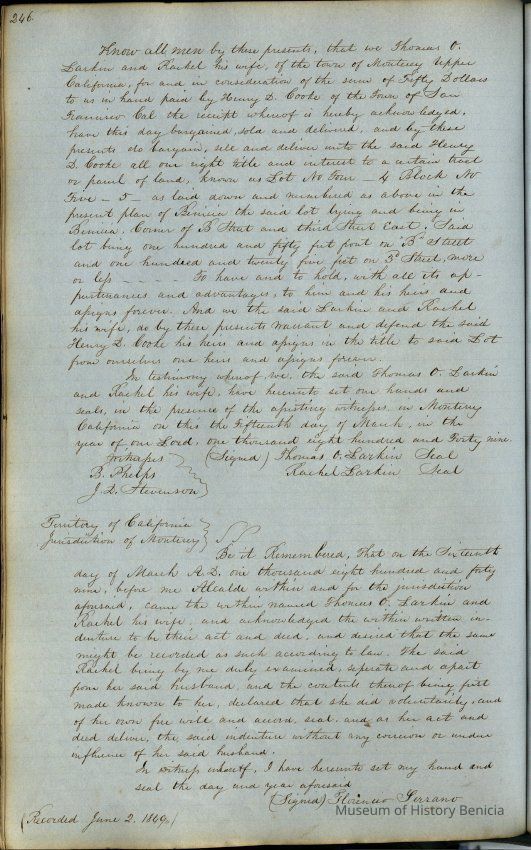 246
Know all men by these presents, that we Thomas O.
Larkin and Rachel his wife, of the town of Monterey Upper
California, for and in consideration of the sum of Fifty Dollars
to us in hand paid by Henry D. Cooke of the Town of San
Francisco Cal the receipt whereof is hereby acknowledged,
have this day bargained, sold and delivered, and by these
presents do bargain, sell and deliver unto the said Henry
D. Cooke all our right title and interest to a certain tract
or parcel of land, known as Lot No Four - 4 Block No
Five - 5 - as laid down and numbered as above in the
present plan of Benicia the said lot lying and being in
Benicia, Corner of B Street and third Street East, Said
lot being one hundred and fifty feet front on "B" Street
and one hundred and twenty five feet on 3d Street, more
or less - - - - - To have and to hold, with all its ap-
purtenances and advantages, to him and his heirs and
assigns forever. And we the said Larkin and Rachel
his wife, do by these presents warrant and defend the said
Henry D. Cooke his heirs and assigns in the title to said Lot
from ourselves our heirs and assigns forever.
In testimony whereof we, the said Thomas O. Larkin
and Rachel his wife, have hereunto set our hands and
seals, in the presence of the witnesses, in Monterey
California on this the Fifteenth day of March, in the
year of our Lord, one thousand eight hundred and Forty nine.
Witnesses (Signed) Thomas O. Larkin Seal
B. Phelps Rachel Larkin Seal
J. D. Stevenson
Territory of California
Jurisdiction of Monterey } SS
Be it Remembered, That on the Sixteenth
day of March A.D. one thousand eight hundred and forty
nine, before me Alcalde within and for the jurisdiction
aforesaid, came the within named Thomas O. Larkin and
Rachel his wife, and acknowledged the within written in-
denture to be their act and deed, and desired that the same
might be recorded as such according to law. The said
Rachel being by me duly examined, seperate and apart
from her said husband, and the contents thereof being first
made known to her, declared that she did voluntarily, and
of her own free will and accord, seal, and as her act and
deed deliver, the said indenture without any coercion or undue
influence of her said husband.
In witness whereof, I have hereunto set my hand and
seal the day and year aforesaid
(Signed) Florencio Serrano
(Recorded June 2. 1849.)
Museum of History Benicia